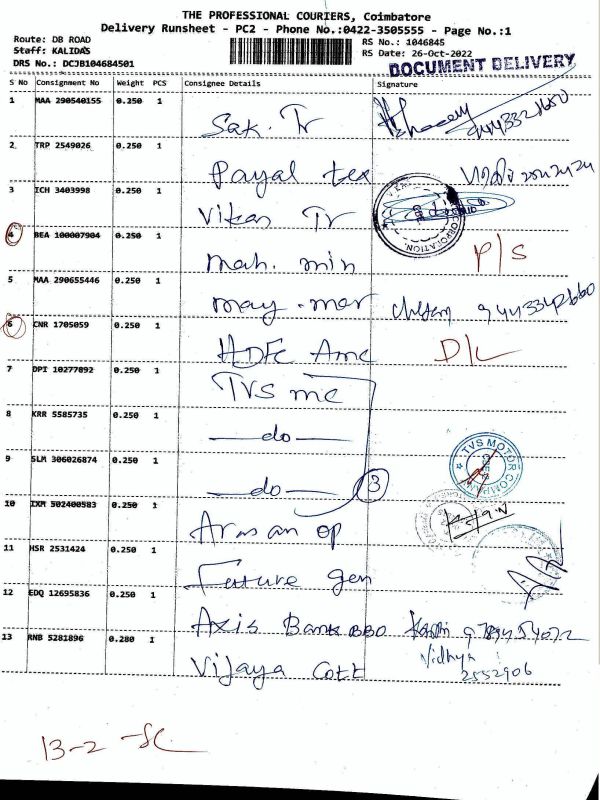 THE PROFESSIONAL COURIERS, Coimbatore
Delivery Runsheet - PC2 - Phone No.:0422-3505555 - Page No.:1
Route: DB ROAD
Staff: KALIDAS
DRS No.: DCJB104684501
RS No.: 1046845
RS Date: 26-Oct-2022
DOCUMENT DELIVERY
S No Consignment No Weight PCS Consignee Details Signature
1 MAA 290540155 0.250 1 Sak. Tr
2 TRP 2549026 0.250 1 Payal tex
3 ICH 3403998 0.250 1 Vikas Tr
4 BEA 100007904 0.250 1 mah. min P/S
5 MAA 290655446 0.250 1 may. mer
6 CNR 1705059 0.250 1 HDFC Amc D/L
7 DPI 10277892 0.250 1 TVS mc
8 KRR 5585735 0.250 1 —do—
9 SLM 306026874 0.250 1 —do— 3
TVS MOTOR COMPANY
10 IXM 502400583 0.250 1 op
11 HSR 2531424 0.250 1 Future gen
12 EDQ 12695836 0.250 1 Axis Bank BBO
13 RNB 5281896 0.280 1 Vijaya Cott Vidhya
2552906
13-2